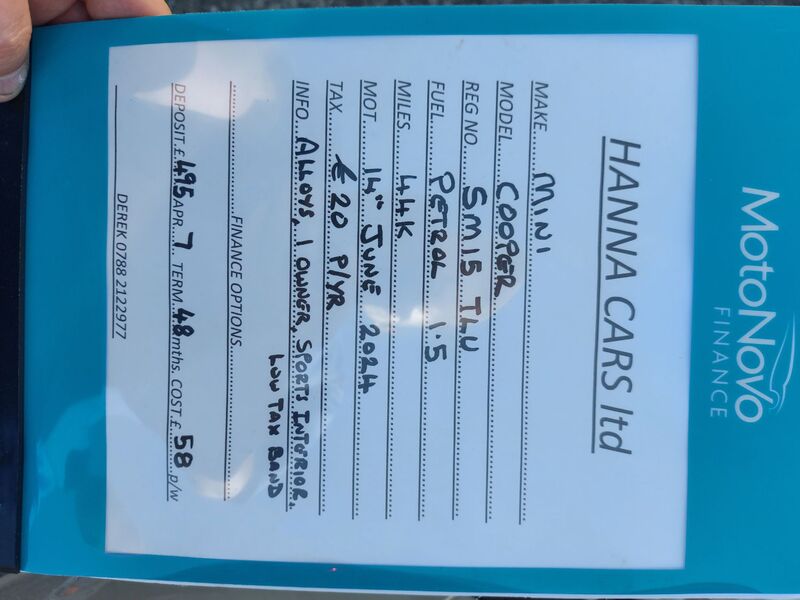 MotoNovo
FINANCE
HANNA CARS ltd
MAKE...MINI
MODEL...COOPER
REG NO...SM15 TLN
FUEL...PETROL 1.5
MILES...44K
MOT...14TH JUNE 2024
TAX...£20 P/YR
INFO...ALLOYS, 1 OWNER, SPORTS INTERIOR.
LOW TAX BAND
FINANCE OPTIONS
DEPOSIT £495 APR...7 TERM 48 mths. COST £ 58 p/w
DEREK 0788 2122977